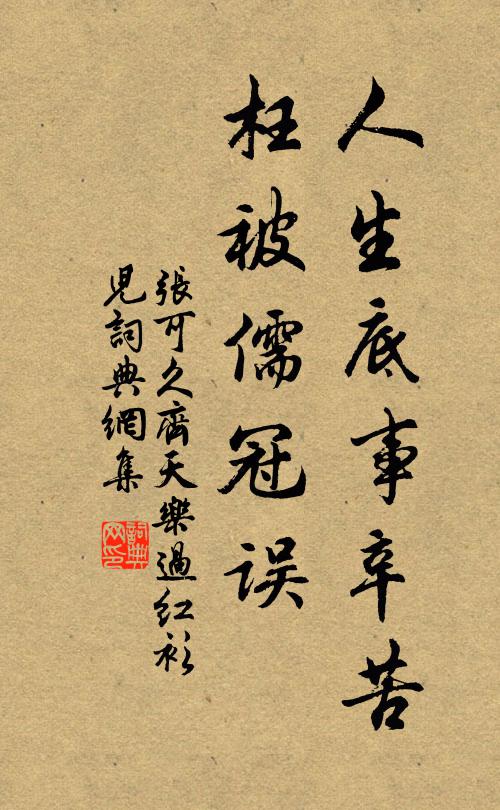 人生底事辛苦
枉被儒冠误
張可久齊天樂過红衫
児詞典網集
詞典網印